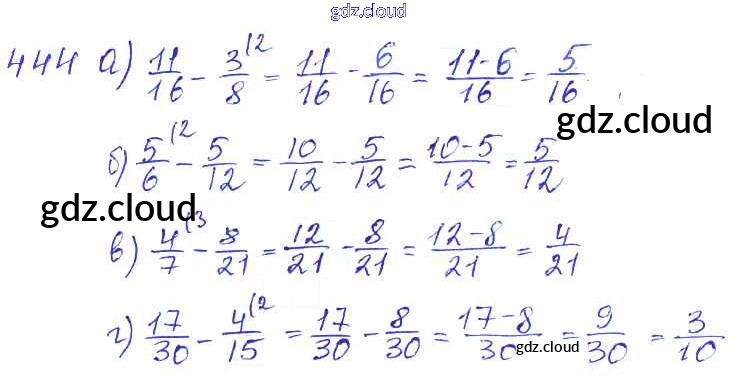 gdz.cloud
444 а) 11/16 - 3/8 (2 = 11/16 - 6/16 = 11-6/16 = 5/16
gdz.cloud
б) 5/6 (2 - 5/12 = 10/12 - 5/12 = 10-5/12 = 5/12
gdz.cloud
в) 4/7 (3 - 8/21 = 12/21 - 8/21 = 12-8/21 = 4/21
г) 17/30 - 4/15 (2 = 17/30 - 8/30 = 17-8/30 = 9/30 = 3/10
gdz.cloud